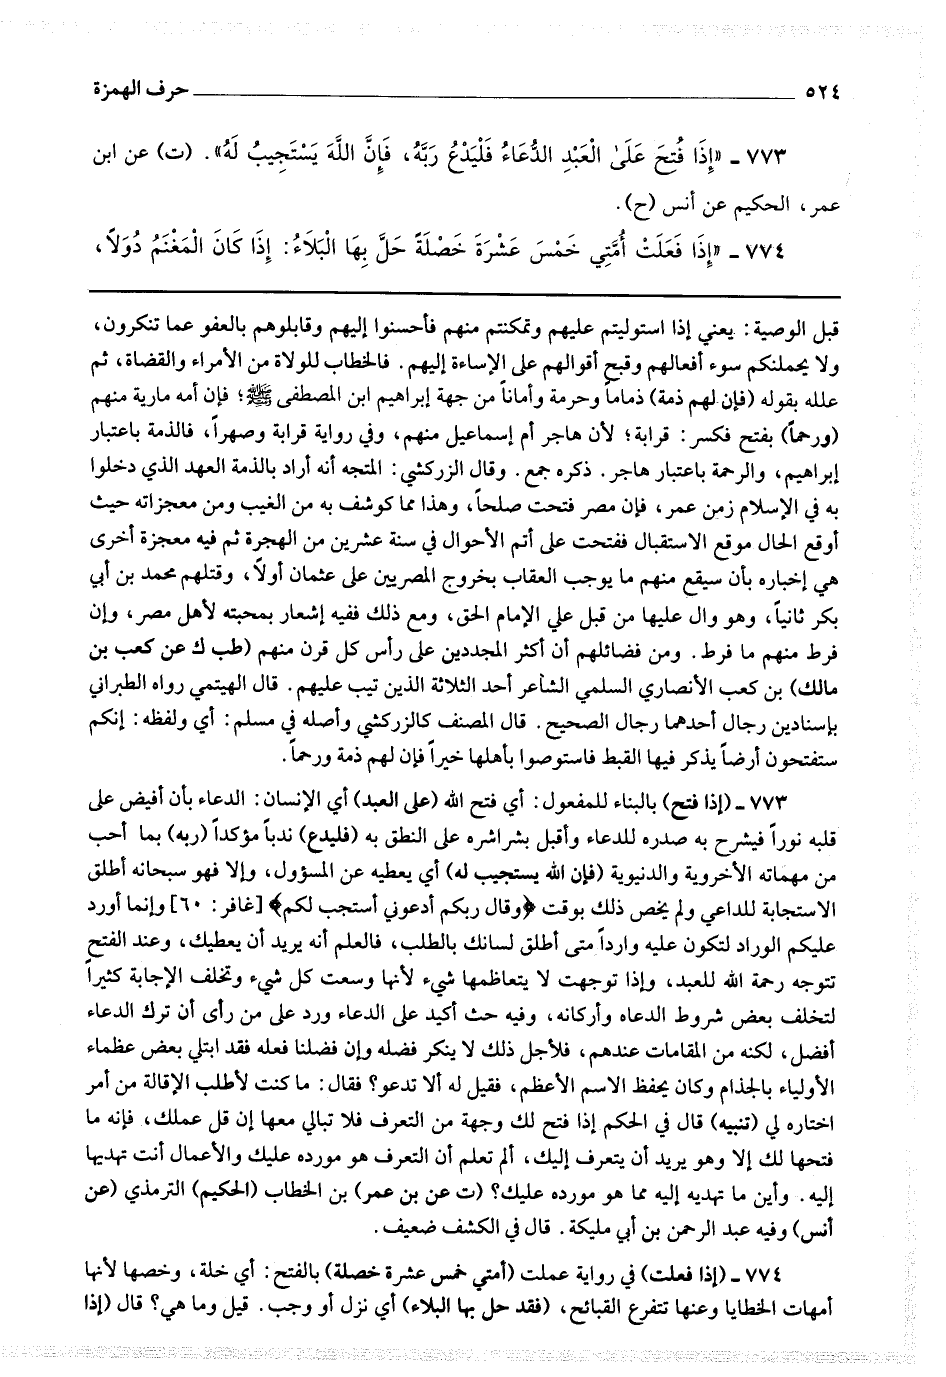 ٥٢٤ حرف الهمزة
٧٧٣ ـ «إِذَا فُتِحَ عَلَىٰ الْعَبْدِ الدُّعَاءُ فَلْيَدْعُ رَبَّهُ، فَإِنَّ اللَّهَ يَسْتَجِيبُ لَهُ». (ت) عن ابن
عمر، الحكيم عن أنس (ح).
٧٧٤ ـ «إِذَا فَعَلَتْ أُمَّتِي خَمْسَ عَشْرَةَ خَصْلَةً حَلَّ بِهَا الْبَلَاءُ: إِذَا كَانَ الْمَغْنَمُ دُوَلاً،
قبل الوصية: يعني إذا استوليتم عليهم وتمكنتم منهم فأحسنوا إليهم وقابلوهم بالعفو عما تنكرون،
ولا يحملنكم سوء أفعالهم وقبح أقوالهم على الإساءة إليهم. فالخطاب للولاة من الأمراء والقضاة، ثم
علله بقوله (فإن لهم ذمة) ذماماً وحرمة وأماناً من جهة إبراهيم ابن المصطفى ﷺ؛ فإن أمه مارية منهم
(ورحماً) بفتح فكسر: قرابة؛ لأن هاجر أم إسماعيل منهم، وفي رواية قرابة وصهراً، فالذمة باعتبار
إبراهيم، والرحمة باعتبار هاجر. ذكره جمع. وقال الزركشي: المتجه أنه أراد بالذمة العهد الذي دخلوا
به في الإسلام زمن عمر، فإن مصر فتحت صلحاً، وهذا مما كوشف به من الغيب ومن معجزاته حيث
أوقع الحال موقع الاستقبال ففتحت على أتم الأحوال في سنة عشرين من الهجرة ثم فيه معجزة أخرى
هي إخباره بأن سيقع منهم ما يوجب العقاب بخروج المصريين على عثمان أولاً، وقتلهم محمد بن أبي
بكر ثانياً، وهو وال عليها من قبل علي الإمام الحق، ومع ذلك ففيه إشعار بمحبته لأهل مصر، وإن
فرط منهم ما فرط. ومن فضائلهم أن أكثر المجددين على رأس كل قرن منهم (طب ك عن كعب بن
مالك) بن كعب الأنصاري السلمي الشاعر أحد الثلاثة الذين تيب عليهم. قال الهيتمي رواه الطبراني
بإسنادين رجال أحدهما رجال الصحيح. قال المصنف كالزركشي وأصله في مسلم: أي ولفظه: إنكم
ستفتحون أرضاً يذكر فيها القبط فاستوصوا بأهلها خيراً فإن لهم ذمة ورحماً.
٧٧٣ ـ (إذا فتح) بالبناء للمفعول: أي فتح الله (على العبد) أي الإنسان: الدعاء بأن أفيض على
قلبه نوراً فيشرح به صدره للدعاء وأقبل بشراشره على النطق به (فليدع) ندباً مؤكداً (ربه) بما أحب
من مهماته الأخروية والدنيوية (فإن الله يستجيب له) أي يعطيه عن المسؤول، وإلا فهو سبحانه أطلق
الاستجابة للداعي ولم يخص ذلك بوقت ﴿وقال ربكم أدعوني أستجب لكم﴾ [غافر: ٦٠] وإنما أورد
عليكم الوراد لتكون عليه وارداً متى أطلق لسانك بالطلب، فالعلم أنه يريد أن يعطيك، وعند الفتح
تتوجه رحمة الله للعبد، وإذا توجهت لا يتعاظمها شيء لأنها وسعت كل شيء وتخلف الإجابة كثيراً
لتخلف بعض شروط الدعاه وأركانه، وفيه حث أكيد على الدعاء ورد على من رأى أن ترك الدعاء
أفضل، لكنه من المقامات عندهم، فلأجل ذلك لا ينكر فضله وإن فضلنا فعله فقد ابتلي بعض عظماء
الأولياء بالجذام وكان يحفظ الاسم الأعظم، فقيل له ألا تدعو؟ فقال: ما كنت لأطلب الإقالة من أمر
اختاره لي (تنبيه) قال في الحكم إذا فتح لك وجهة من التعرف فلا تبالي معها إن قل عملك، فإنه ما
فتحها لك إلا وهو يريد أن يتعرف إليك، ألم تعلم أن التعرف هو مورده عليك والأعمال أنت تهديها
إليه. وأين ما تهديه إليه مما هو مورده عليك؟ (ت عن بن عمر) بن الخطاب (الحكيم) الترمذي (عن
أنس) وفيه عبد الرحمن بن أبي مليكة. قال في الكشف ضعيف.
٧٧٤ ـ (إذا فعلت) في رواية عملت (أمتي خمس عشرة خصلة) بالفتح: أي خلة، وخصها لأنها
أمهات الخطايا وعنها تتفرع القبائح، (فقد حل بها البلاء) أي نزل أو وجب. قيل وما هي؟ قال (إذا